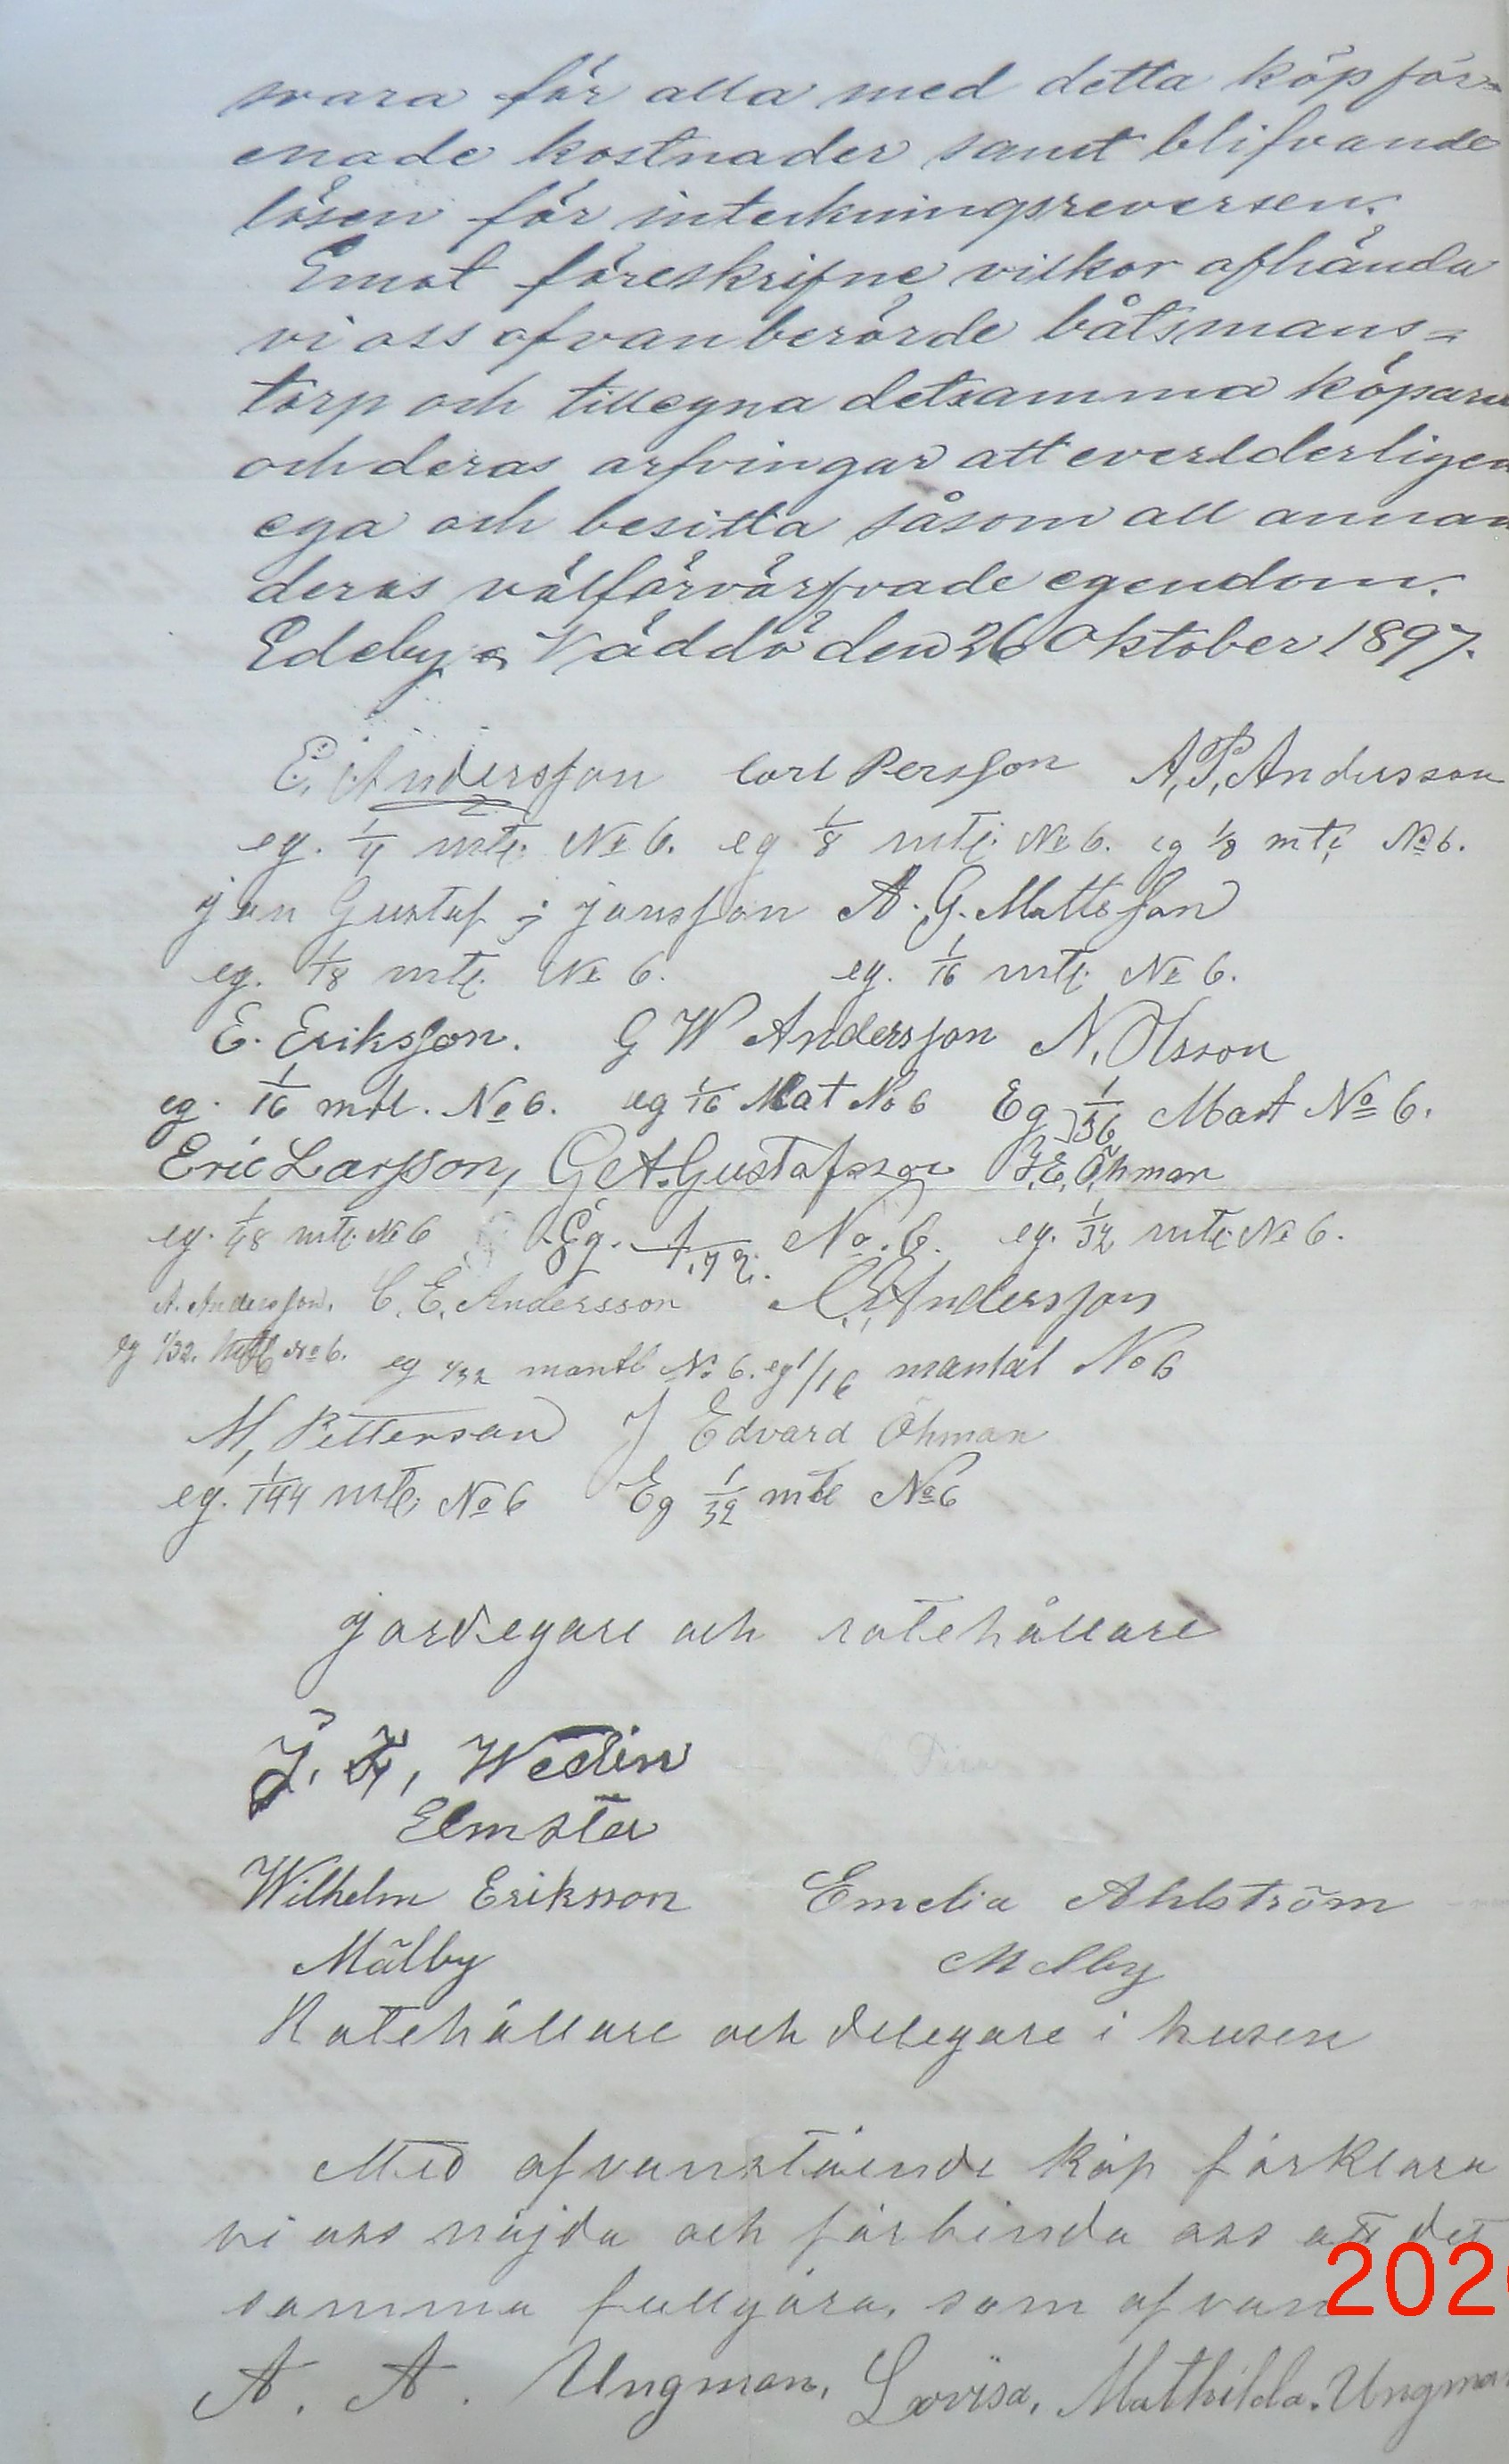 svara för alla med detta köp för-
enade kostnader samt blifvande
lösen för inteckningsreversen.
Emot föreskrifne vilkor afhända
vi oss ofvanberörde båtsmans=
torp och tillegna detsamma köparn
och deras arfvingar att everlderligen
ega och besitta såsom all annan
deras välförvärfvade egendom.
Edeby Väddö den 26 Oktober 1897.
E. Andersson Carl Persson A. P. Andersson
eg. 1/4 mtl. No 6. eg 1/8 mtl. No 6. eg 1/8 mtl No 6.
jan Gustaf j jansson A. G. Mattsson
eg. 1/8 mtl. No 6. eg. 1/16 mtl No 6.
E. Eriksson. G W Andersson N. Olsson
eg. 1/16 mtl. No 6. eg 1/16 Mat No 6 Eg 1/36 Mant No 6.
Eric Larsson, G. A. Gustafsson J. E. Öhman
eg. 1/48 mtl. No 6 Eg. No. 6. eg. 1/32 mtl. No 6.
A. Andersson. C. E. Andersson Andersson
eg 1/32. Mtl No 6. eg 1/32 mantl No 6. eg 1/16 mantal No 6
M, Petterson J Edvard Öhman
eg. 1/144 mtl. No 6 Eg 1/32 mtl No 6
jordegare och rotehållare
J. F, Wedin
Elmsta
Wilhelm Eriksson Emelia Ahlström
Mälby Melby
Rotehållare och delegare i husen
Med ofvanstående köp förklara
vi oss nöjda och förbinda oss att det
samma fullgöra, som ofvan
202
A. A. Ungman, Lovisa, Mathilda. Ungman